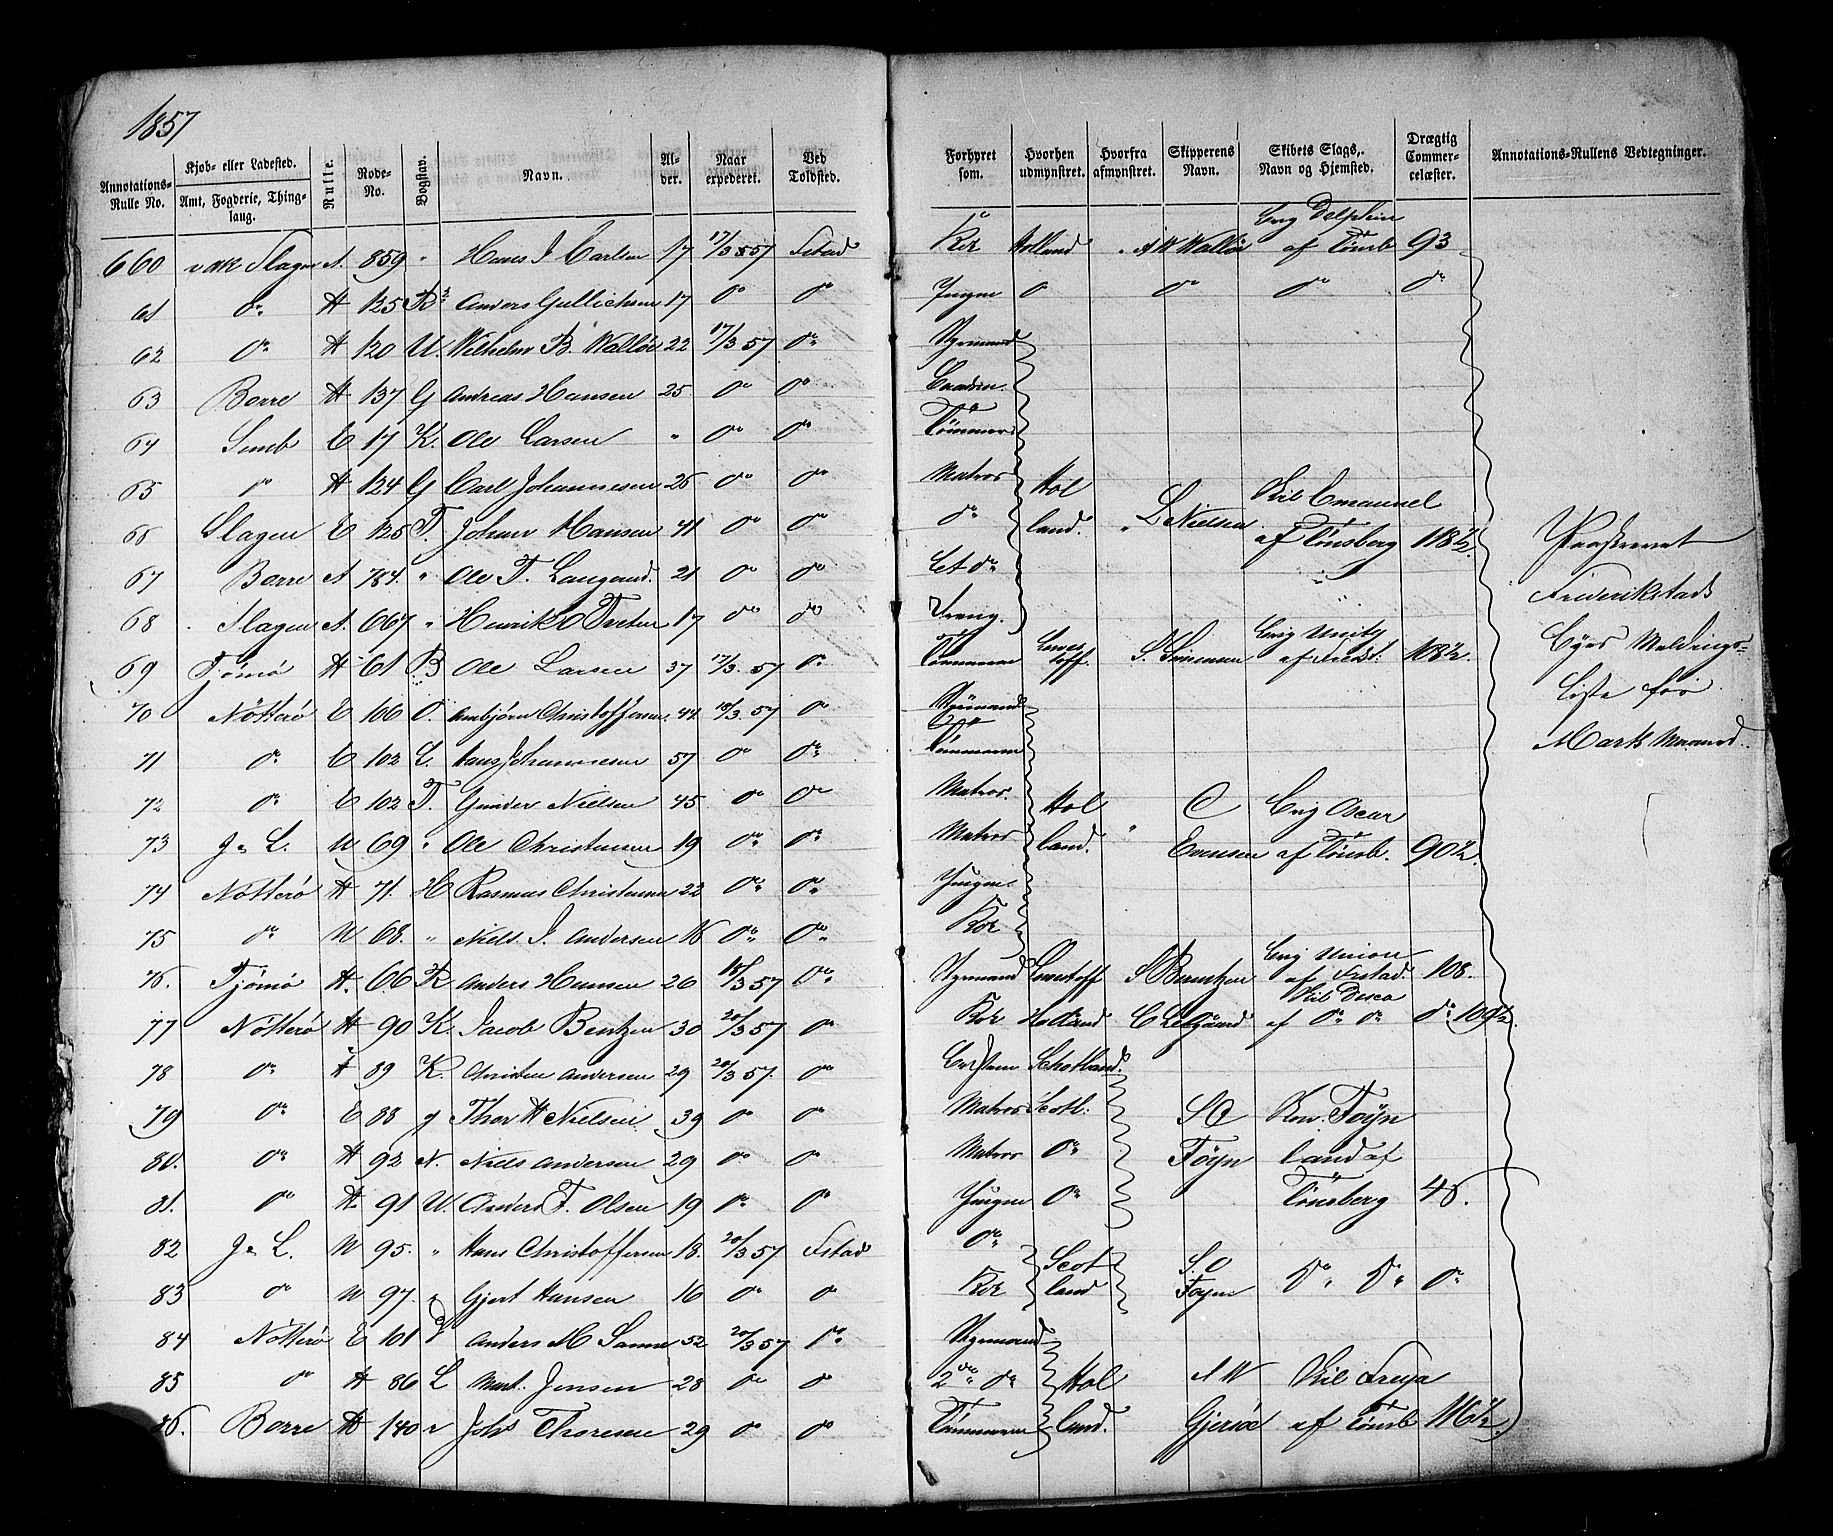 1857
Annotations-Rulle No. Kjøb- eller Ladested. Amt, Fogderie, Thinglaug. Rulle. Rode-No. Bogstav. Navn. Alder. Naar erpederet. Ved Toldsted. Forhyret som. Hvorhen udmynstret. Hvorfra afmynstret. Skipperens Navn. Skibets Slags, Navn og Hjemsted. Drægtig Commercelæster. Annotations-Rullens Vedtegninger.
660 Slagen A. 859 " Hans J Carlsen 17 17/3 57 Fstad Kok Holland " A W Walløe Brig Delphin af Tönsb 93
61 do A 125 B Anders Gullichsen 17 do do Jungm do do do do
62 do A 120 U. Wilhelm B. Walløe 22 17/3 57 do Styrmand
63 Borre A 137 G Andreas Hansen 25 do do
64 Semb E 17 K. Ole Larsen " do do Tömmerm
65 do A 124 G Carl Johannesen 26 do do Matros
66 Slagen E 125 T. Johan Hansen 41 do do do Holland. " L Nielsen Skib Emanuel af Tönsberg 118½
67 Borre A 784. " Ole T. Laugaard. 21 do do Let do
68 Slagen A. 667 " Henrik O Tveten 17 do do Dreng.
69 Tjömö A 61 B Ole Larsen 37 17/3. 57 do Tömmerm S. Sörensen Brig Unity af Fredst. 108½.
70 Nötterö E 106 O. Anbjörn Christoffersen 44 18/3. 57 do Styrmand
71 do E 102 L. Hans Johannesen 57 do do Tömmerm
72 do E 102 T. Gunder Nielsen 45 do do Matros.
73 J. L. U 69 " Ole Christensen 19 do do Matros Holland. " C Evensen Brig Oscar af Tönsb. 90½.
74 Nötterö A 71. H Rasmus Christensen 22 do do Jungm
75 do U 68. " Niels J. Andersen 16 do do Kok
76. Tjömö A. 66 K Anders Hansen 26 18/3 57 do Styrmand S Berntzen Brig Union af Frstad. 108.
77 Nötterö A 90 K Jacob Bentzen 30 20/3 57 do Kok Holland af do do do 109½.
78 do A 89 K. Christen Andersen 29 20/3 57. do Schotland.
79 do E 88 g Thor H Nielsen 39 do do Matros Scotl. S C Föyn Föyn land af Tönsberg 48.
80. do A 92 N. Niels Andersen 29 do do Matros do
81. do A 91 U. Anders F. Olsen 19 do do Jungm do
82 J. L. U 95. " Hans Christoffersen 18. 20/3 57 Fstad do
83 do U 97. " Gjert Hansen 16 do do Kok Scotland S. C Foyn do do do
84 Nötterö E 101 Anders M Sanne 52 20/3 57 do Styrmand
85 do A 86 L Mart. Jensen 28 do do 2den do Holland. A W Gjersöe Skib Freya af Tönsb 116½.
86. Borre A 140 Johs Thoresen 29 do do Tömmerm
Paaskrevet
Frederikstads
Byes Meldings-
Liste for
Marts Maaned.